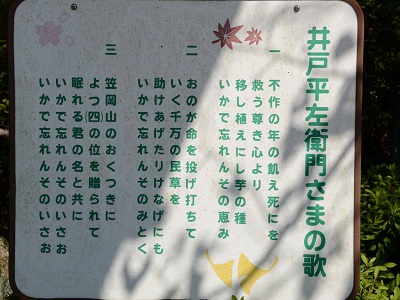 井戸平左衛門さまの歌
一 不作の年の飢え死にを
救う尊き心より
移し植えにし芋の種
いかで忘れんその恵み
二 おのが命を投げ打ちて
いく千万の民草を
助けあげたりけなげにも
いかで忘れんそのみとく
三 笠岡山のおくつきに
よつ(四)の位を贈られて
眠れる君の名と共に
いかで忘れんそのいさお
いかで忘れんそのいさお